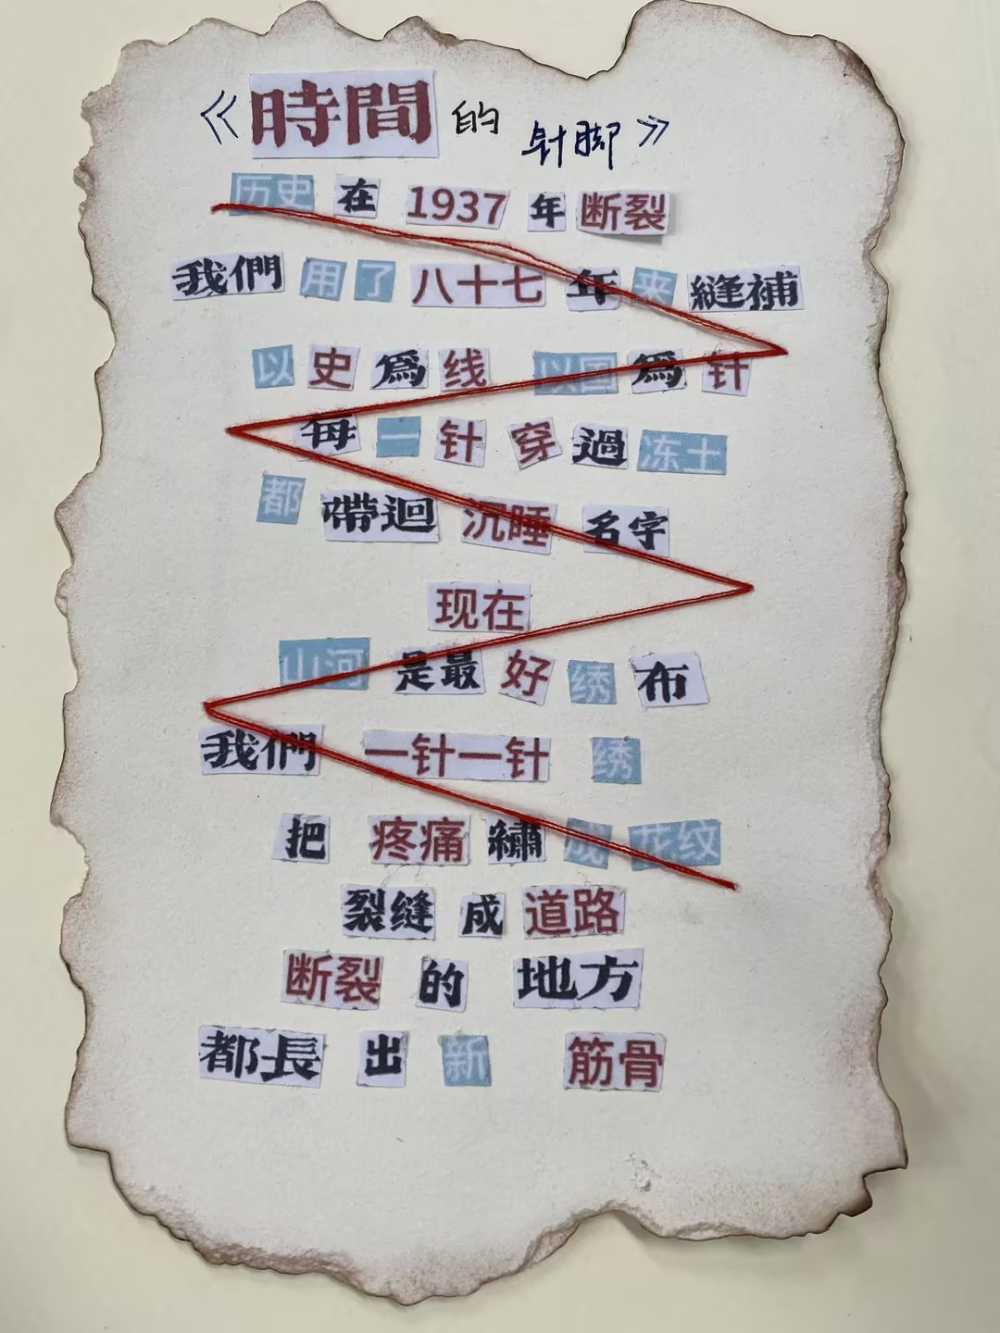 《時間的针脚》
历史在1937年断裂
我們用了八十七年来縫補
以史爲线 以国爲针
每一针穿過冻土
都帶迴沉睡名字
现在
山河是最好绣布
我們一针一针绣
把疼痛繡成花纹
裂缝成道路
断裂的地方
都長出新筋骨